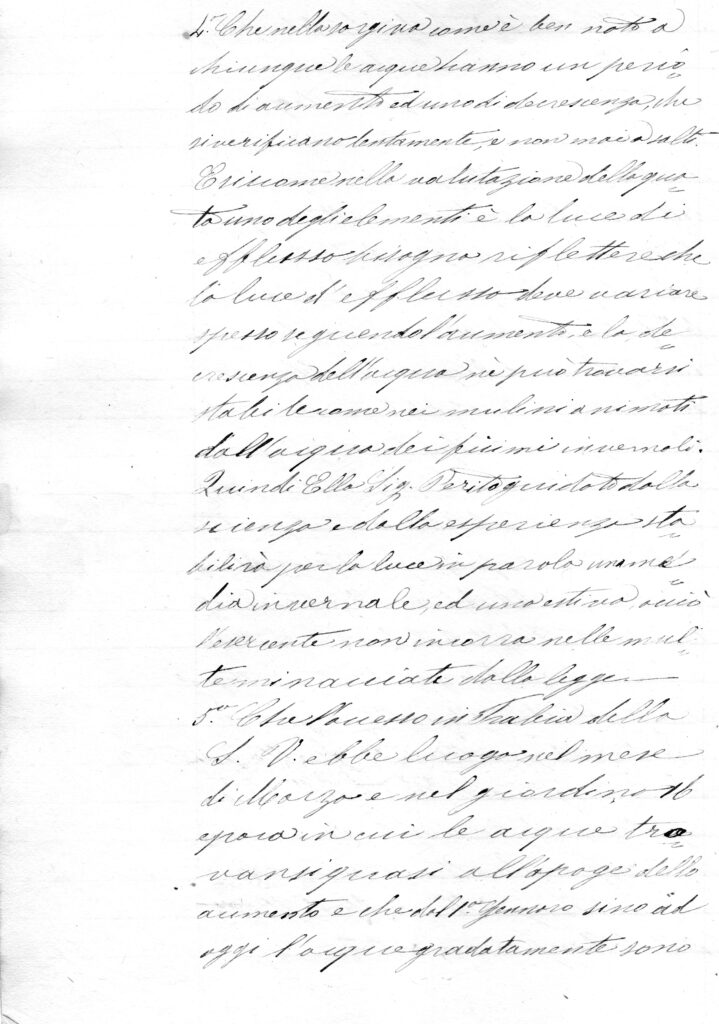 4.° Che nella sorgiva come è ben noto a
chiunque le acque hanno un perio-
do di aumento ed uno di decrescenza, che
si verificano lentamente, e non mai a salti.
E siccome nella valutazione della quo-
ta uno degli elementi è la luce di
efflusso bisogna riflettere che
la luce d'efflusso deve variare
spesso seguendo l'aumento, e la de-
crescenza dell'acqua nè può trovarsi
stabile come nei mulini animati
dall'acqua dei fiumi invernali.
Quindi Ella Sig. Perito guidato dalla
scienza e dalla esperienza sta-
bilirà per la luce in parola una me-
dia invernale, ed una estiva, acciò
l'esercente non incorra nelle mul-
te minacciate dalla legge —
5.° Che l'accesso in Trabia della
S. V. ebbe luogo nel mese
di Marzo e nel giardino 16
epoca in cui le acque tro-
vansi quasi all'apoge dello
aumento e che dal 1.° Gennaro sino ad
oggi l'acque gradatamente sono